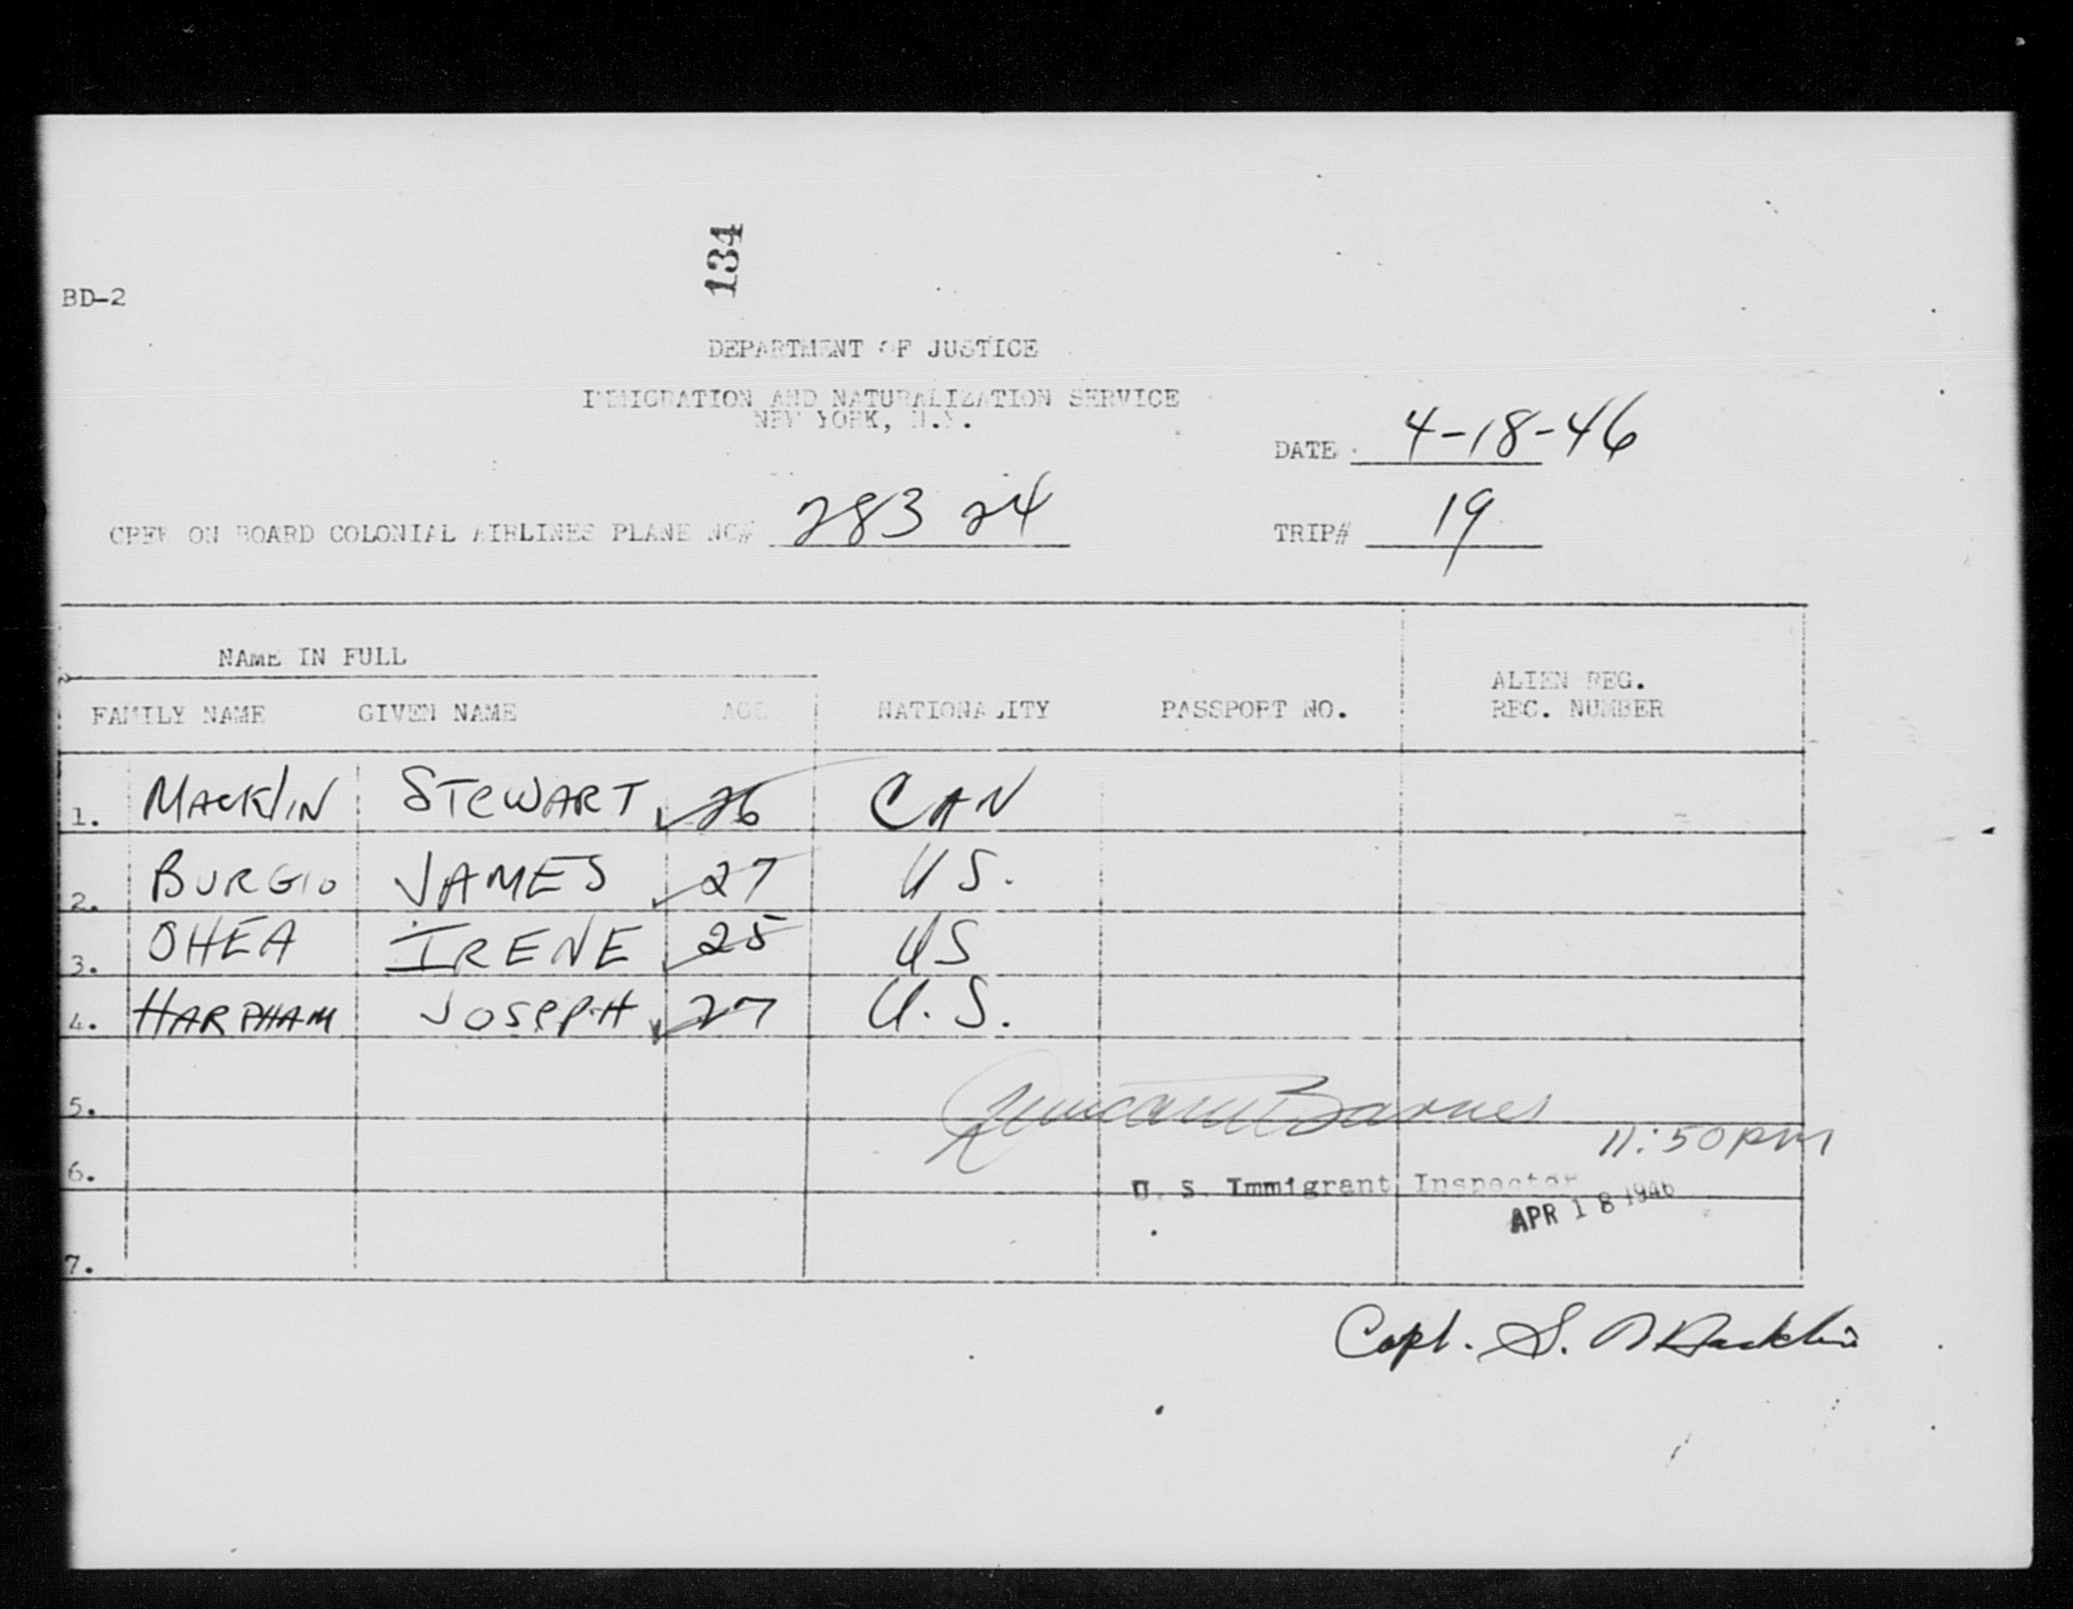 134
BD-2
DEPARTMENT OF JUSTICE
IMMIGRATION AND NATURALIZATION SERVICE
NEW YORK, N.Y.
DATE 4-18-46
CREW ON BOARD COLONIAL AIRLINES PLANE NO# 283 24 TRIP# 19
NAME IN FULL
FAMILY NAME GIVEN NAME AGE NATIONALITY PASSPORT NO. ALIEN REG.
REC. NUMBER
1. MACKLIN STEWART 26 CAN
2. BURGIO JAMES 27 U S.
3. OHEA IRENE 25 US
4. HARPHAM JOSEPH 27 U.S.
5. Barnes
11:50 PM
6. U. S. Immigrant Inspector
APR 18 1946
7.
Capt. S. Macklin